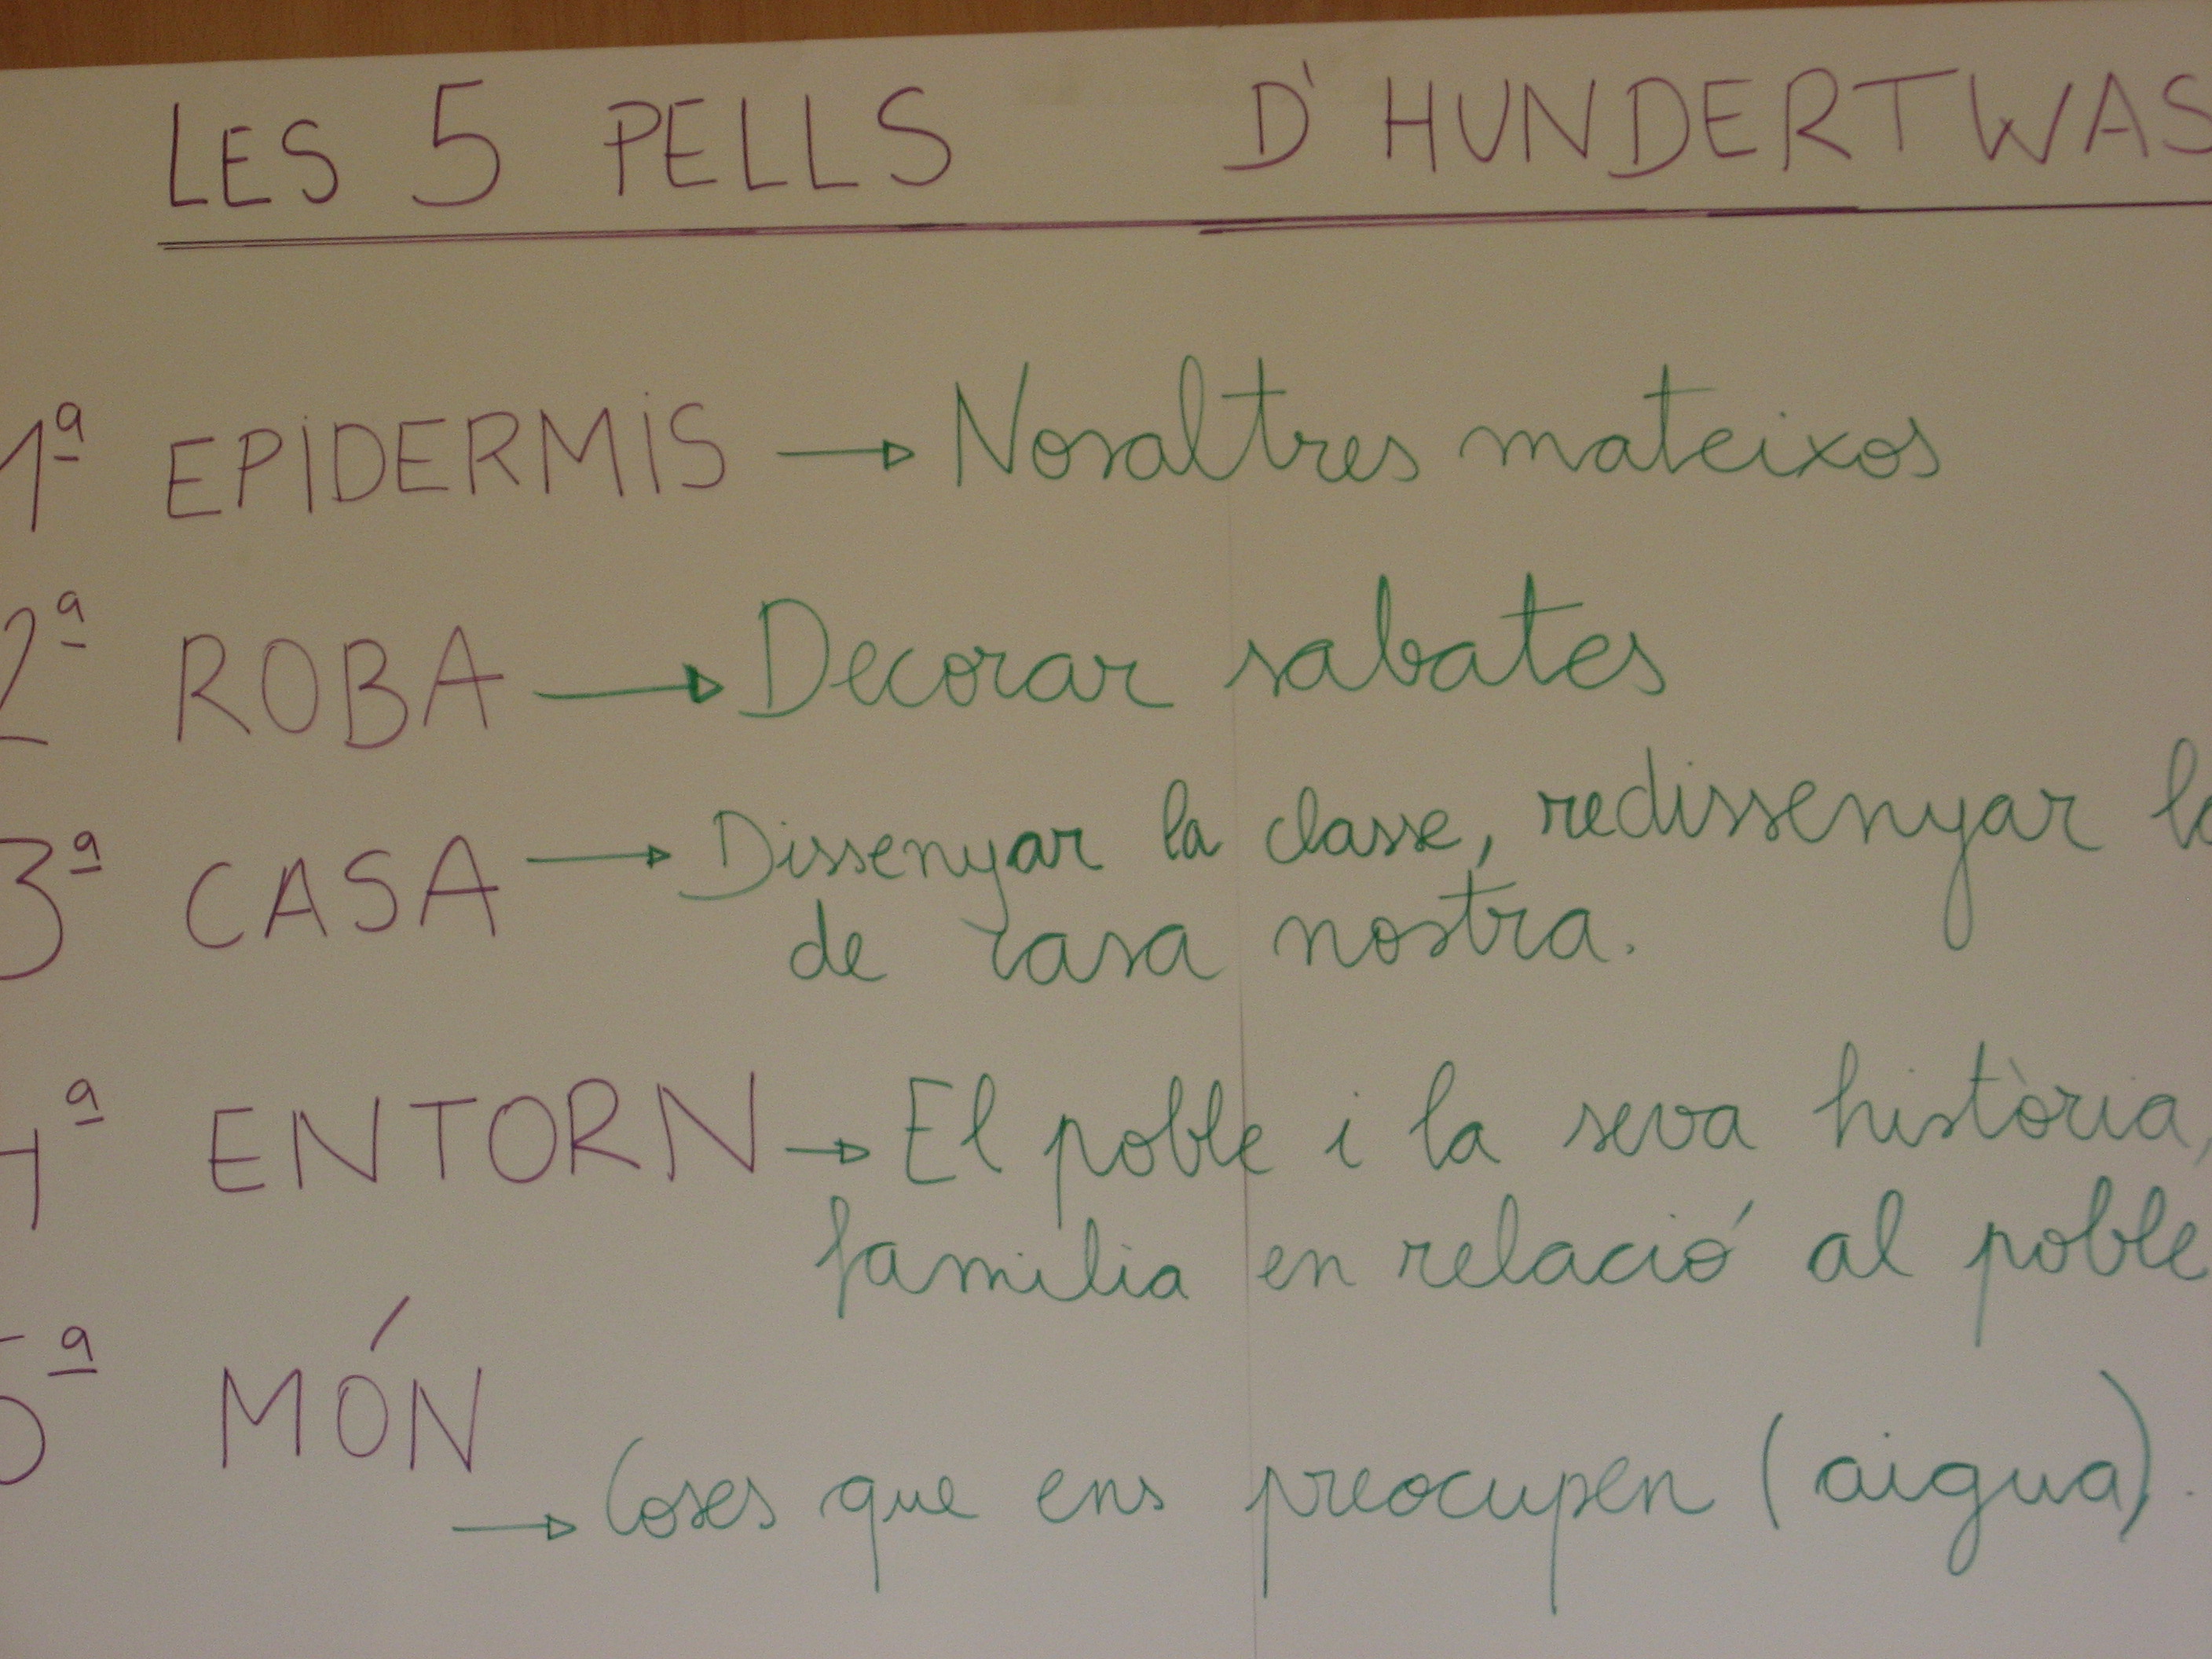 LES 5 PELLS D'HUNDERTWAS
1ª EPIDERMIS → Nosaltres mateixos
2ª ROBA → Decorar sabates
3ª CASA → Dissenyar la classe, redissenyar
de casa nostra.
4ª ENTORN → El poble i la seva història,
familia en relació al poble
5ª MÓN
→ Coses que ens preocupen (aigua).